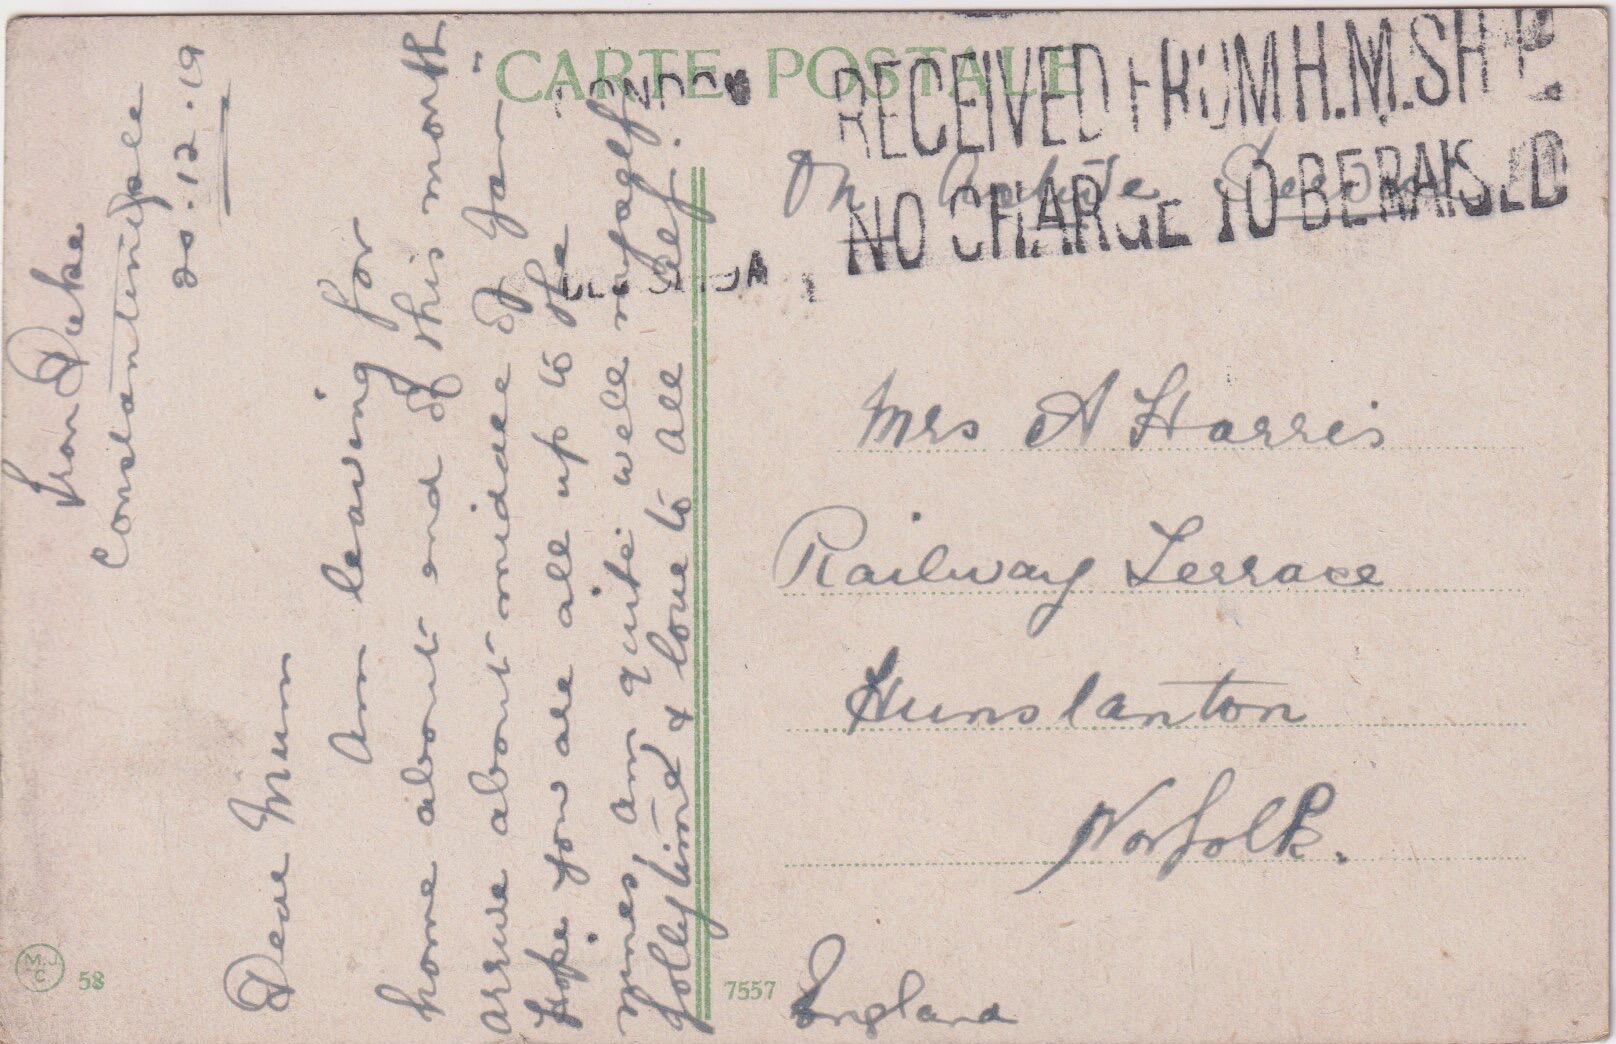 CARTE POSTALE
LONDON
RECEIVED FROM H.M. SHIP
NO CHARGE TO BE RAISED
On Active Service
Mrs A Harris
Railway Terrace
Hunstanton
Norfolk.
England
From Duke
Constantinople
20.12.19
Dear Mum
Am leaving for
home about end of this month
arrive about middle of Jan
Hope you are all up to the
mines am quite well myself
Jolly time & love to all
58
7557
M.J.C